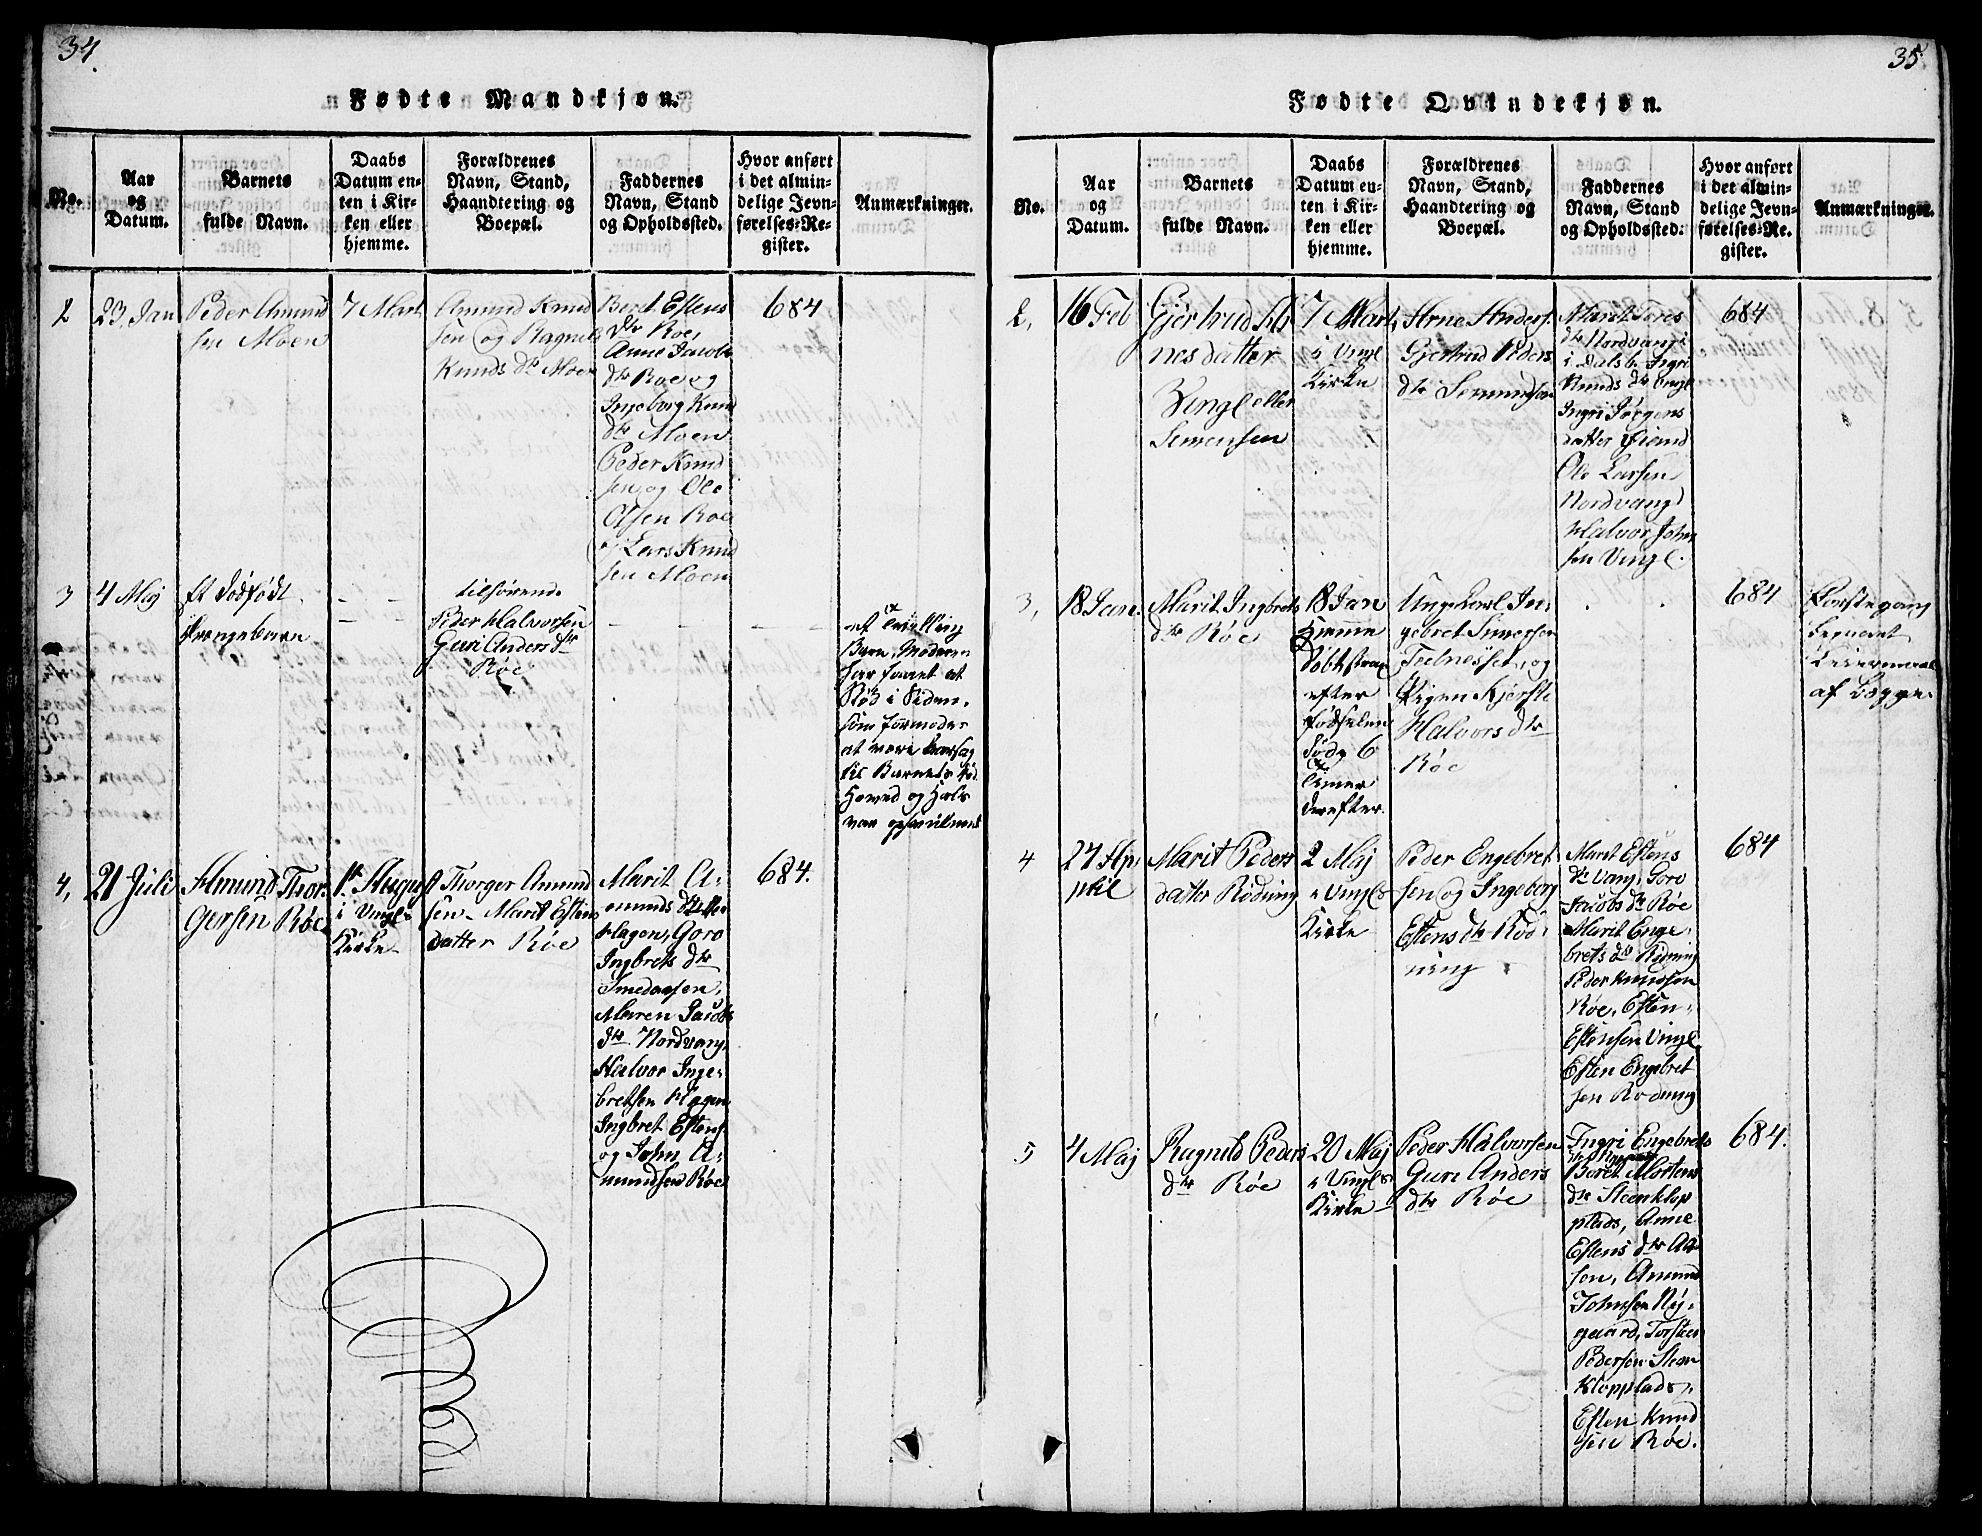 34.
Fødte Mandkjøn.
No.
Aar
og
Datum.
Barnets
fulde Navn.
Daabs
Datum en-
ten i Kir-
ken eller
hjemme.
Forældrenes
Navn, Stand,
Haandtering og
Boepæl.
Faddernes
Navn, Stand
og Opholdssted.
Hvor anført
i det almin-
delige Jevn-
førelses-Re-
gister.
Anmærkninger.
2
23, Jan
Peder Amund
sen Moen
7 Mart
Amund Knud
sen og Ragnild
Knuds dr Moen
Beret Estens
dtr Roe,
Anne Jacobs
dtr Roe og
Ingeborg Knud
dtr Moen
Peder Knud
sen og Ole
Olsen Roe
og Lars Knud
sen Moen
684
3
4 Maj
et dødfødt
Drengebarn
Peder Halvorsen
Guri Anders dtr
Röe
et Tvilling
Barn, Moderen
har faaet et
Stød i Siden,
som formodes
at være Aarsag
til Barnets Død
Hoved og Hals
var
4,
21 Juli
Amund Thor
gersen Röe
1te August
i Vingl
Kirke
Thorger Amund
sen - Marit Estens
datter Röe
Marit A-
munds datter
Hagen, Goro
Ingbrets dtr
Smedaasen,
Maren Jacobs
dtr Nordvang
Halvor Inge-
bretsen Hagen
Ingbret Estens
og John A-
mundsen Röe
684.
35.
Fødte Qvindekjøn.
No.
Aar
og
Datum.
Barnets
fulde Navn.
Daabs
Datum en-
ten i Kir-
ken eller
hjemme.
Forældrenes
Navn, Stand,
Haandtering og
Boepæl.
Faddernes
Navn, Stand
og Opholdssted.
Hvor anført
i det almin-
delige Jevn-
førelses-Re-
gister.
Anmærkninger.
2,
16 Feb
Gjertrud Ar
nesdatter
Vingl eller
Simensen
7 Mart,
i Vingl
Kirke
Arne Anders.
Gjertrud Peders
dtr
Marit Tores
dtr Nordvangs
i Dalsb. Ingri
Knuds dtr Vingl
Ingri Jørgens
datter
Ole Larsen
Nordvang
Halvor John
sen Vingl.
684
3,
18 Jan.
Marit Ingbrets
dtr Röe
18 Jan
Hjemme
døbt strax
efter
fødselen
døde 6
Timer
derefter.
Ungekarl In-
gebret Simensen
og
Pigen Kjersti
Halvors dtr
Röe
684
Første gang
begaaet
Leiermaal
af begge.
4
27 Ap,
pril
Marit Peders
datter Rödning
2 Maj
i Vingls
Kirke
Peder Engebret
sen og Ingeborg
Estens dtr Röd-
ning
Maret Estens
dtr Vang, Goro
Jacobs dtr Röe
Maril Enge-
brets dtr Rödning
Peder Knudsen
Röe, Esten
Estensen Vingl
Esten Engebret
sen Rödning
684
5
4 Maj
Ragnild Peders
dtr Röe
20 Maj
i Vingls
Kirke
Peder Halvorsen
Gure Anders
dtr Röe
Ingri Engebrets
Beret Mortens
dtr Steenklop
plads, Anne
Estens dtr Aa
sen, Amund
Johnsen Ny-
gaard, Torsten
Pedersen Steen
Klopplads,
Esten Knud
sen Röe.
684.